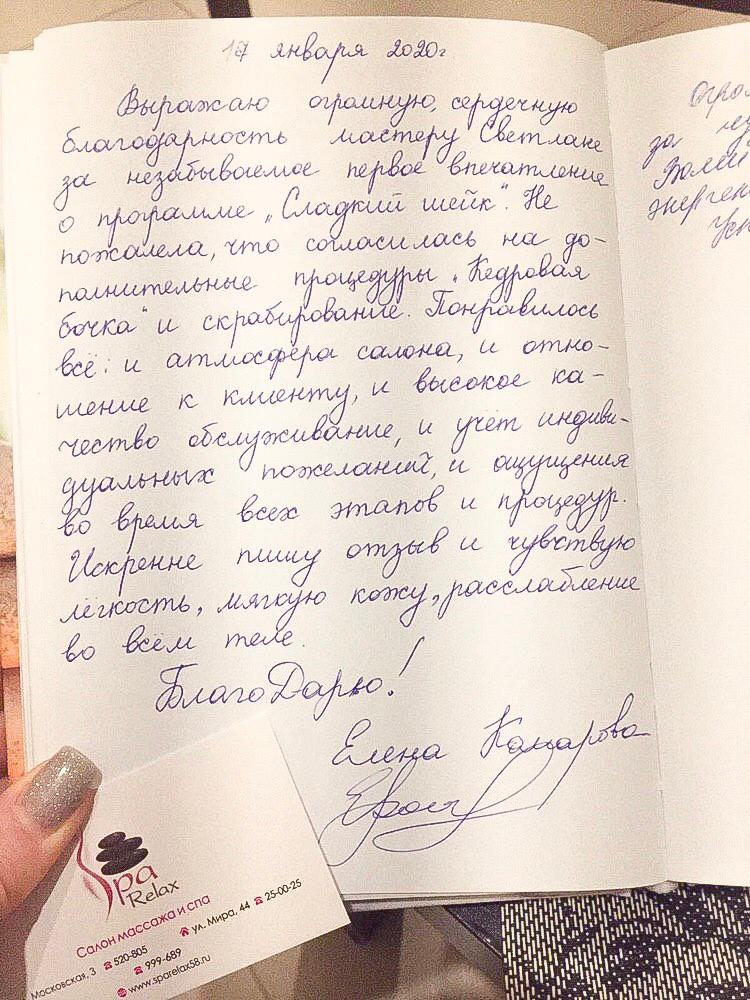 17 января 2020г
Выражаю огромную, сердечную
благодарность мастеру Светлане
за незабываемое первое впечатление
о программе „Сладкий шейк". Не
пожалела, что согласилась на до-
полнительные процедуры „Кедровая
бочка" и скрабирование. Понравилось
всё: и атмосфера салона, и отно-
шение к клиенту, и высокое ка-
чество обслуживание, и учёт индиви-
дуальных пожеланий, и ощущения
во время всех этапов и процедур.
Искренне пишу отзыв и чувствую
лёгкость, мягкую кожу, расслабление
во всём теле.
БлагоДарю!
Елена
за
Spa
Relax
Салон массажа и спа
Московская, 3 520-805 ул. Мира, 44 25-00-25
999-689
www.sparelax58.ru